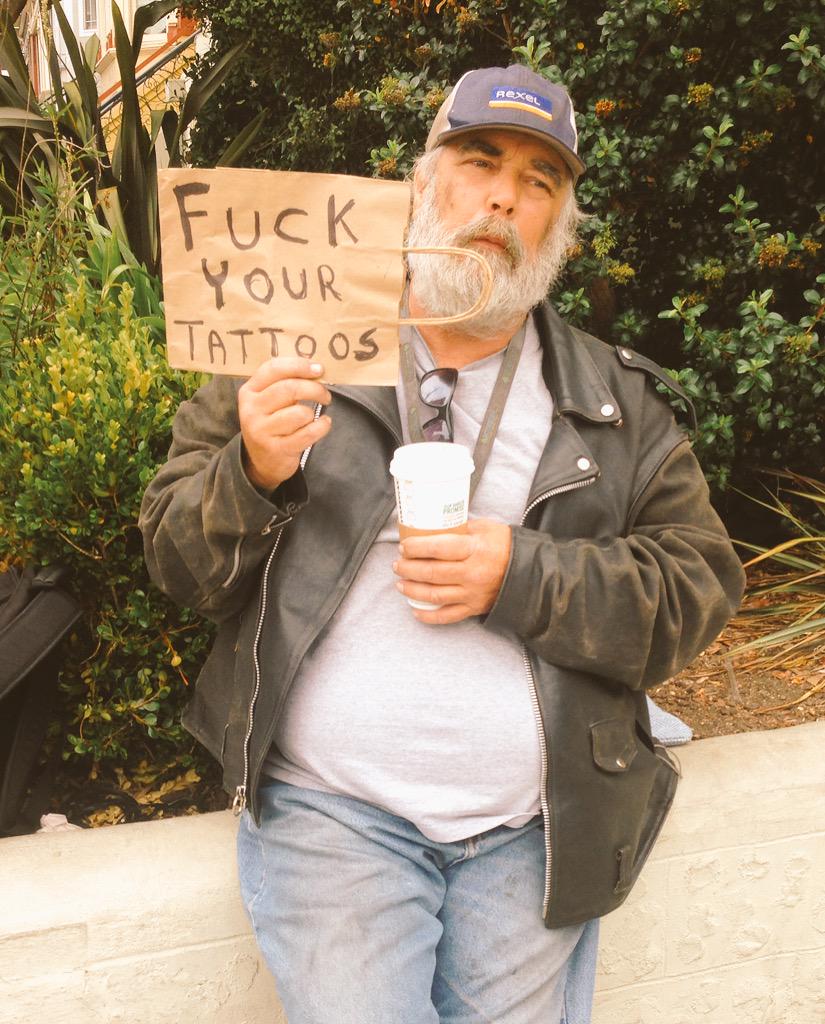 REXEL
FUCK
YOUR
TATTOOS